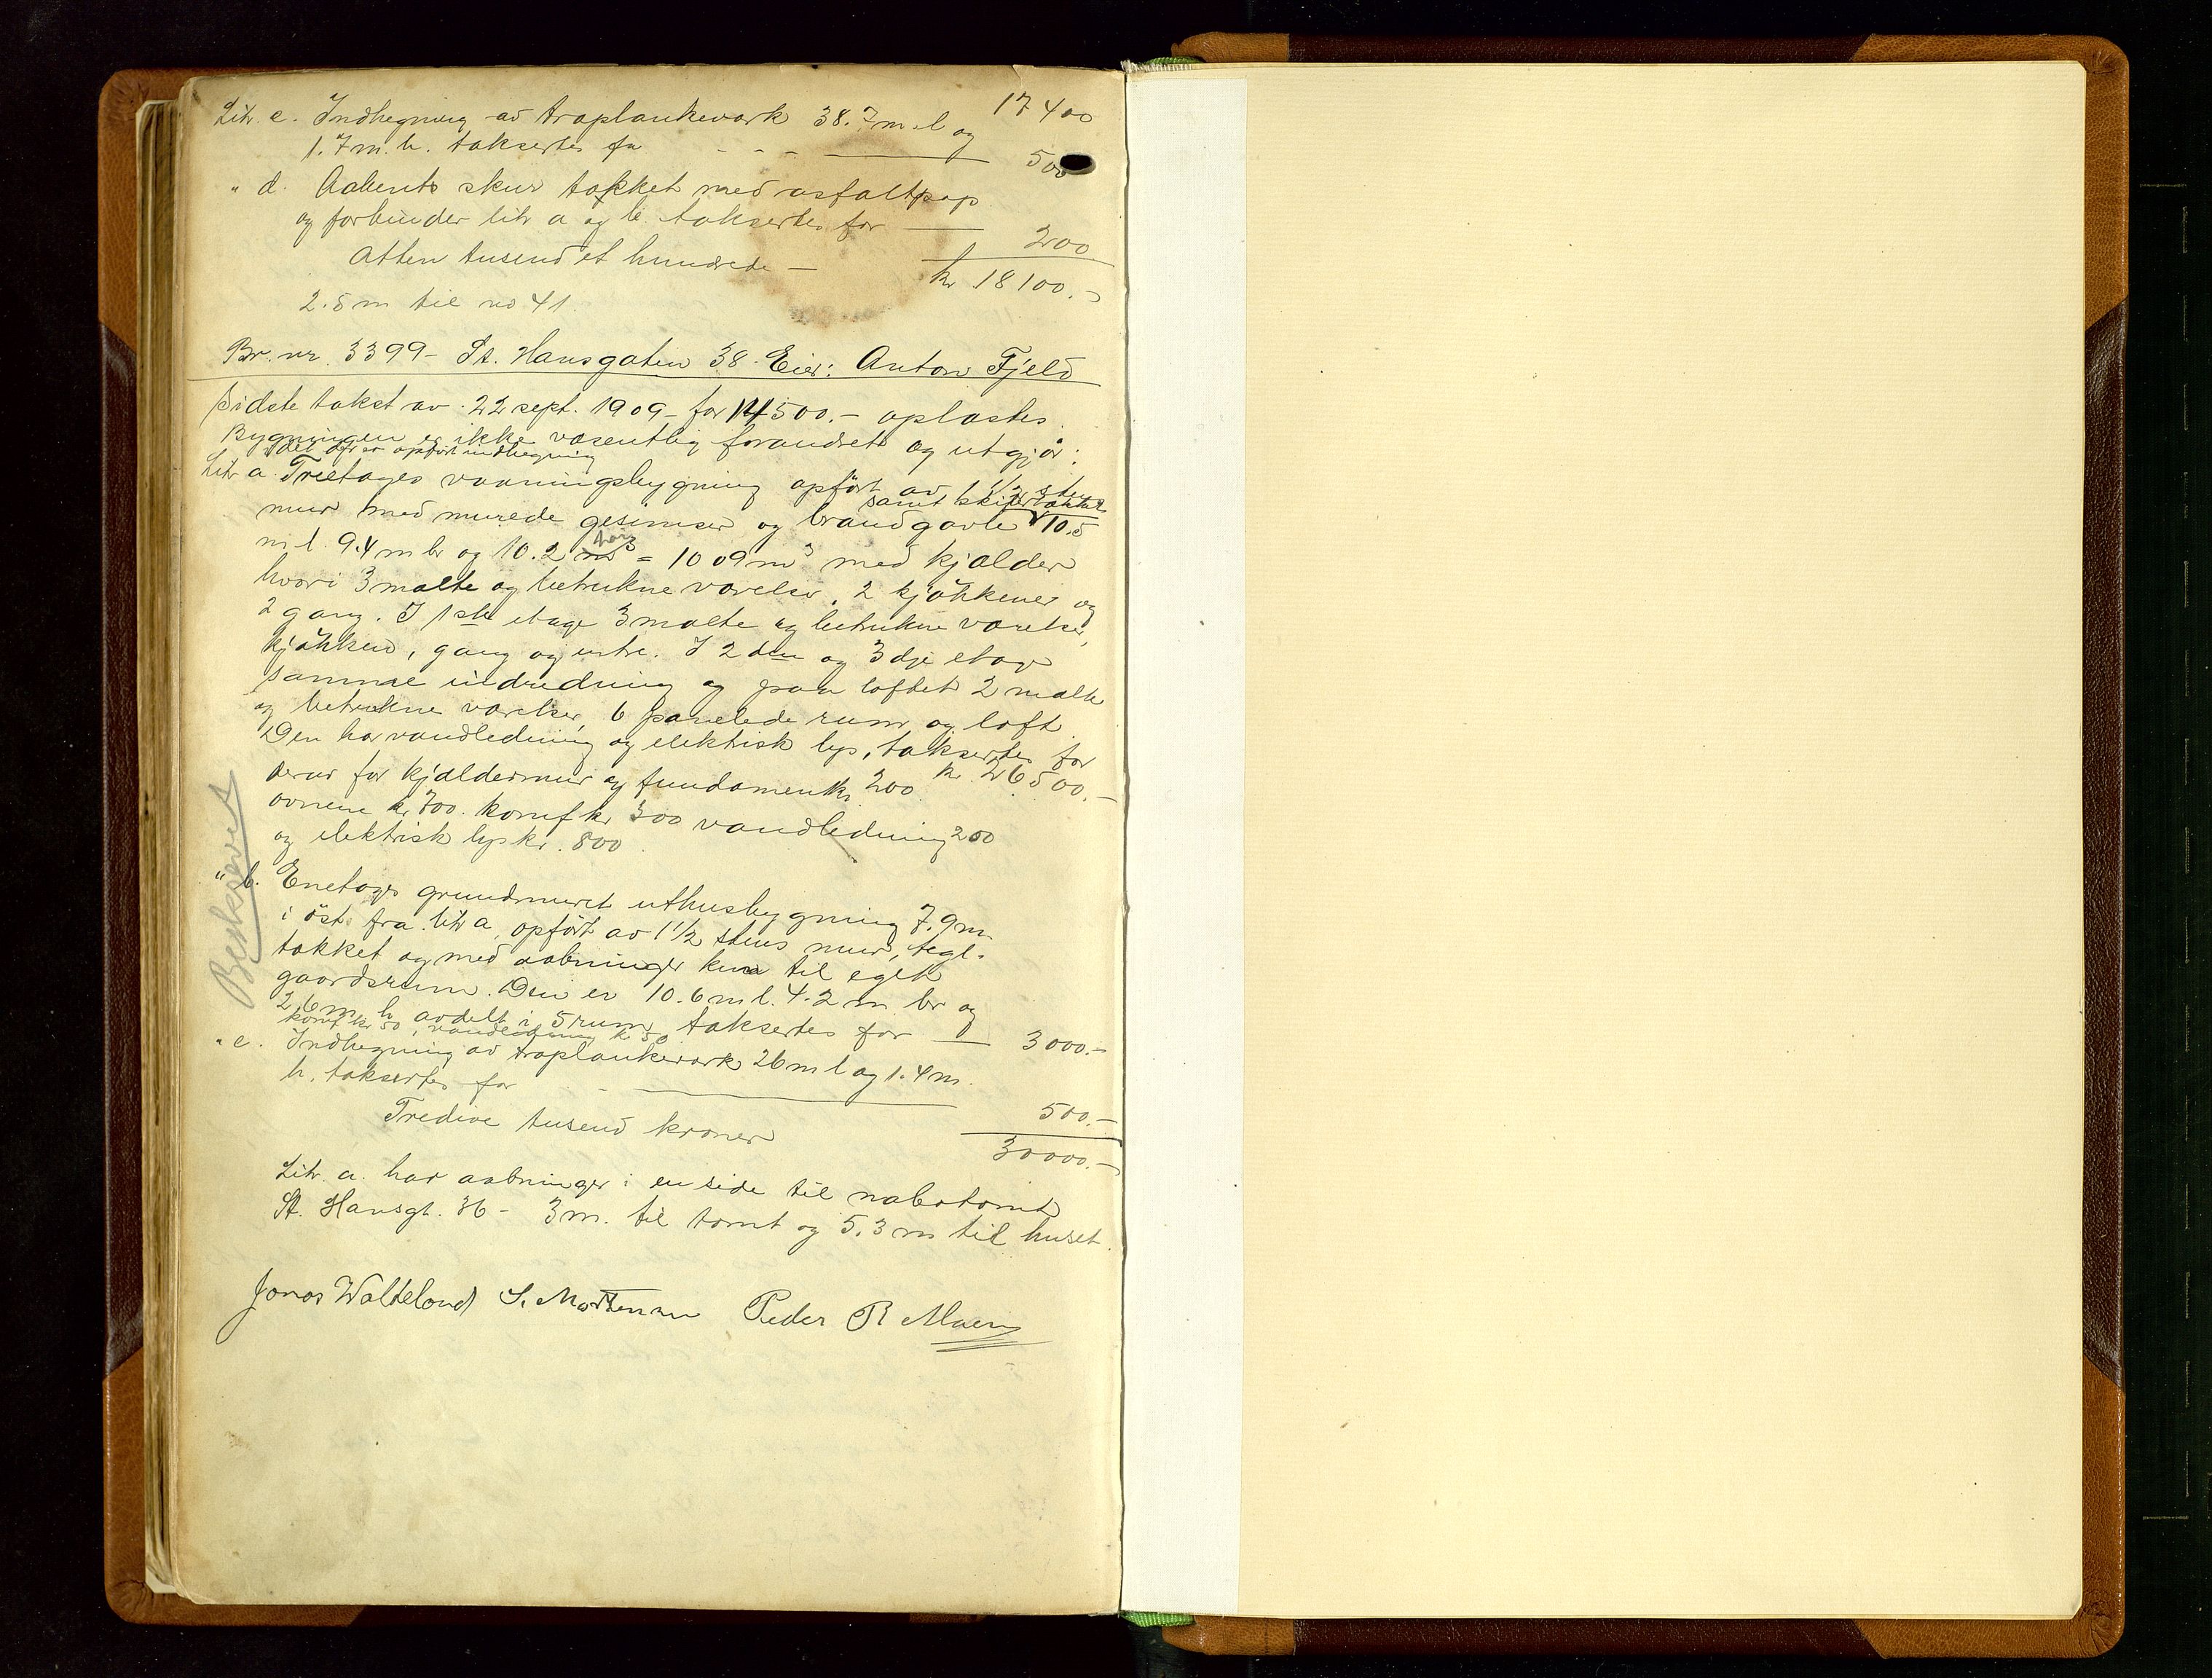 17400
Litr. c. Indhegning av træplankeværk 38.7 m. l og
1.7 m. h. taksertes for - - - 500
" d. Aabent skur tækket med asfaltpap
og forbinder litr a og b. taksertes for 200
Atten tusend et hundrede — kr 18100.-
2.5 m til no 41.
Br. nr. 3399 - St. Hansgaten 38 Eier: Anton Fjeld
Sidste takst av 22 sept. 1909 - for 14500.- oplæstes.
Bygningen er ikke væsentlig forandret og utgjör:
opfört indhegning
Litr a. Treetages vaaningsbygning opfört av 1 1/2 stens
samt skifertækket
mur med murede gesimser og brandgavle 10.5
m l. 9.4 m br og 10.2 höi = 1009 m³ med kjælder
hvori 3 malte og betrukne værelser, 2 kjökkener og
2 gang. I 1ste etage 3 malte og betrukne værelser,
kjökken, gang og entre. I 2den og 3dje etage
samme indredning og paa loftet 2 malte
og betrukne værelser, 6 panelede rum og loft.
Den har vandledning og elektrisk lys, taksertes for
kr. 26500.-
derav for kjældermur og fundament kr. 200
ovnene kr 700. komf kr 300 vandledning 200
og elektrisk lys kr. 800.
" b. Enetages grundmuret uthusbygning 7.9 m
i öst fra litr a, opfört av 1 1/2 stens mur, tegl-
tækket og med aabninger kun til eget
gaardsrum. Den er 10.6 m l. 4.2 m br og
2.6 m h avdelt i 5 rum, taksertes for — 3000.-
komf kr 50, vandledning kr 50
" c. Indhegning av træplankeværk 26 m l og 1.4 m.
h. taksertes for - 500.-
Tredive tusend kroner 30000.-
Litr. a. har aabninger i en side til nabotomt
St. Hansgt. 36 - 3 m. til tomt og 5.3 m til huset.
Jonas Walteland S. Mortensen Peder R Moen
Beskrevet